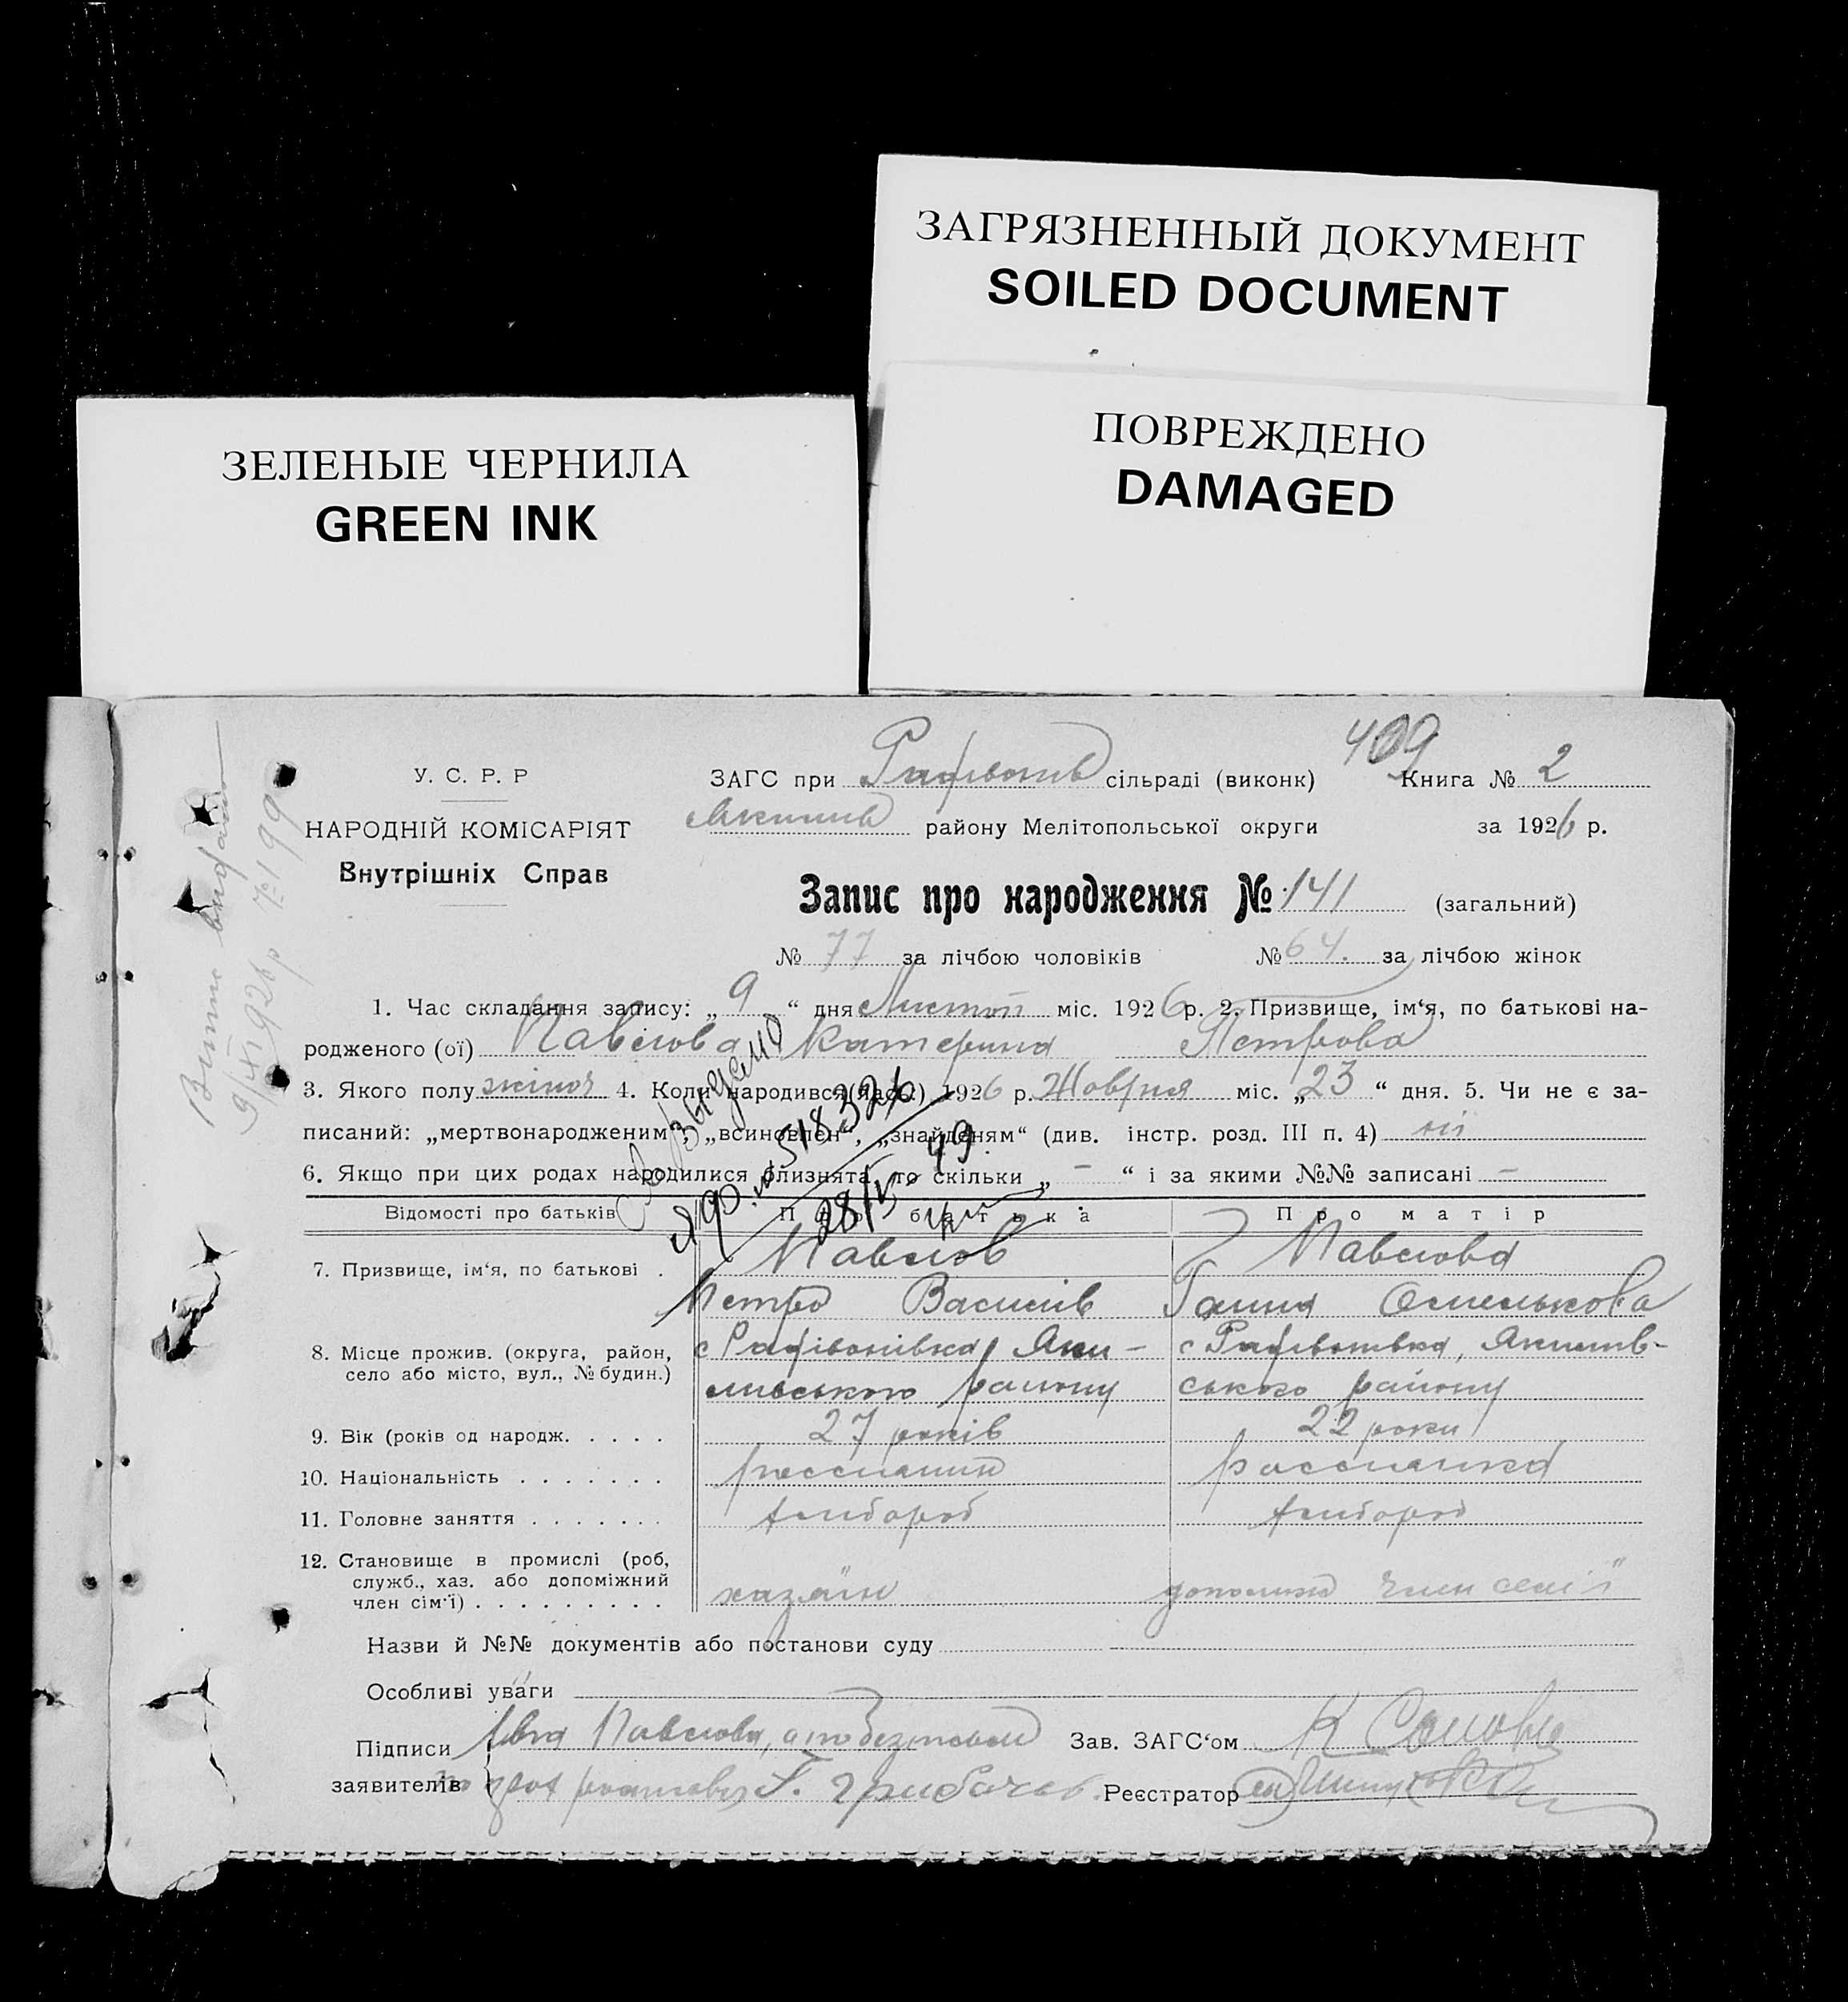 ЗАГРЯЗНЕННЫЙ ДОКУМЕНТ
SOILED DOCUMENT
ЗЕЛЕНЫЕ ЧЕРНИЛА
GREEN INK
ПОВРЕЖДЕНО
DAMAGED
409
У. С. Р. Р
НАРОДНІЙ КОМІСАРІЯТ
Внутрішніх Справ
ЗАГС при сільраді (виконк) Книга № 2
району Мелітопольської округи за 1926 р.
Запис про народження № 141 (загальний)
№ 77 за лічбою чоловіків № 64. за лічбою жінок
1. Час складання запису: „ 9 “ дня Листоп міс. 1926 р. 2. Призвище, ім‘я, по батькові на-
родженого (ої) Павлова Катерина Петрова
3. Якого полу жіноч 4. Коли народився(лась) 1926 р. Жовтня міс. „ 23 “ дня. 5. Чи не є за-
писаний: „мертвонародженим“, „всиновлен“, „знайденям“ (див. інстр. розд. III п. 4) ні
6. Якщо при цих родах народилися близнята, то скільки „ – “ і за якими №№ записані –
Відомості про батьків Про батька Про матір
7. Призвище, ім‘я, по батькові . Павлов Павлова
Петро Василів Ганна Омелькова
8. Місце прожив. (округа, район, с Радівонівка, Яки- с Радівонівка, Якимів-
село або місто, вул., № будин.) мівського району ського району
9. Вік (років од народж. . . . . 27 років 22 роки
10. Національність . . . . . . . россианин россианка
11. Головне заняття . . . . . . . хлибороб хлибороб
12. Становище в промислі (роб,
служб., хаз. або допоміжний
член сім‘ї) . . . . . . . . . хазяїн член семї
Назви й №№ документів або постанови суду
Особливі уваги
Підписи Павлова, Зав. ЗАГС‘ом К
заявителів Реєстратор
Витяг видано
9/XI 926 р № 199